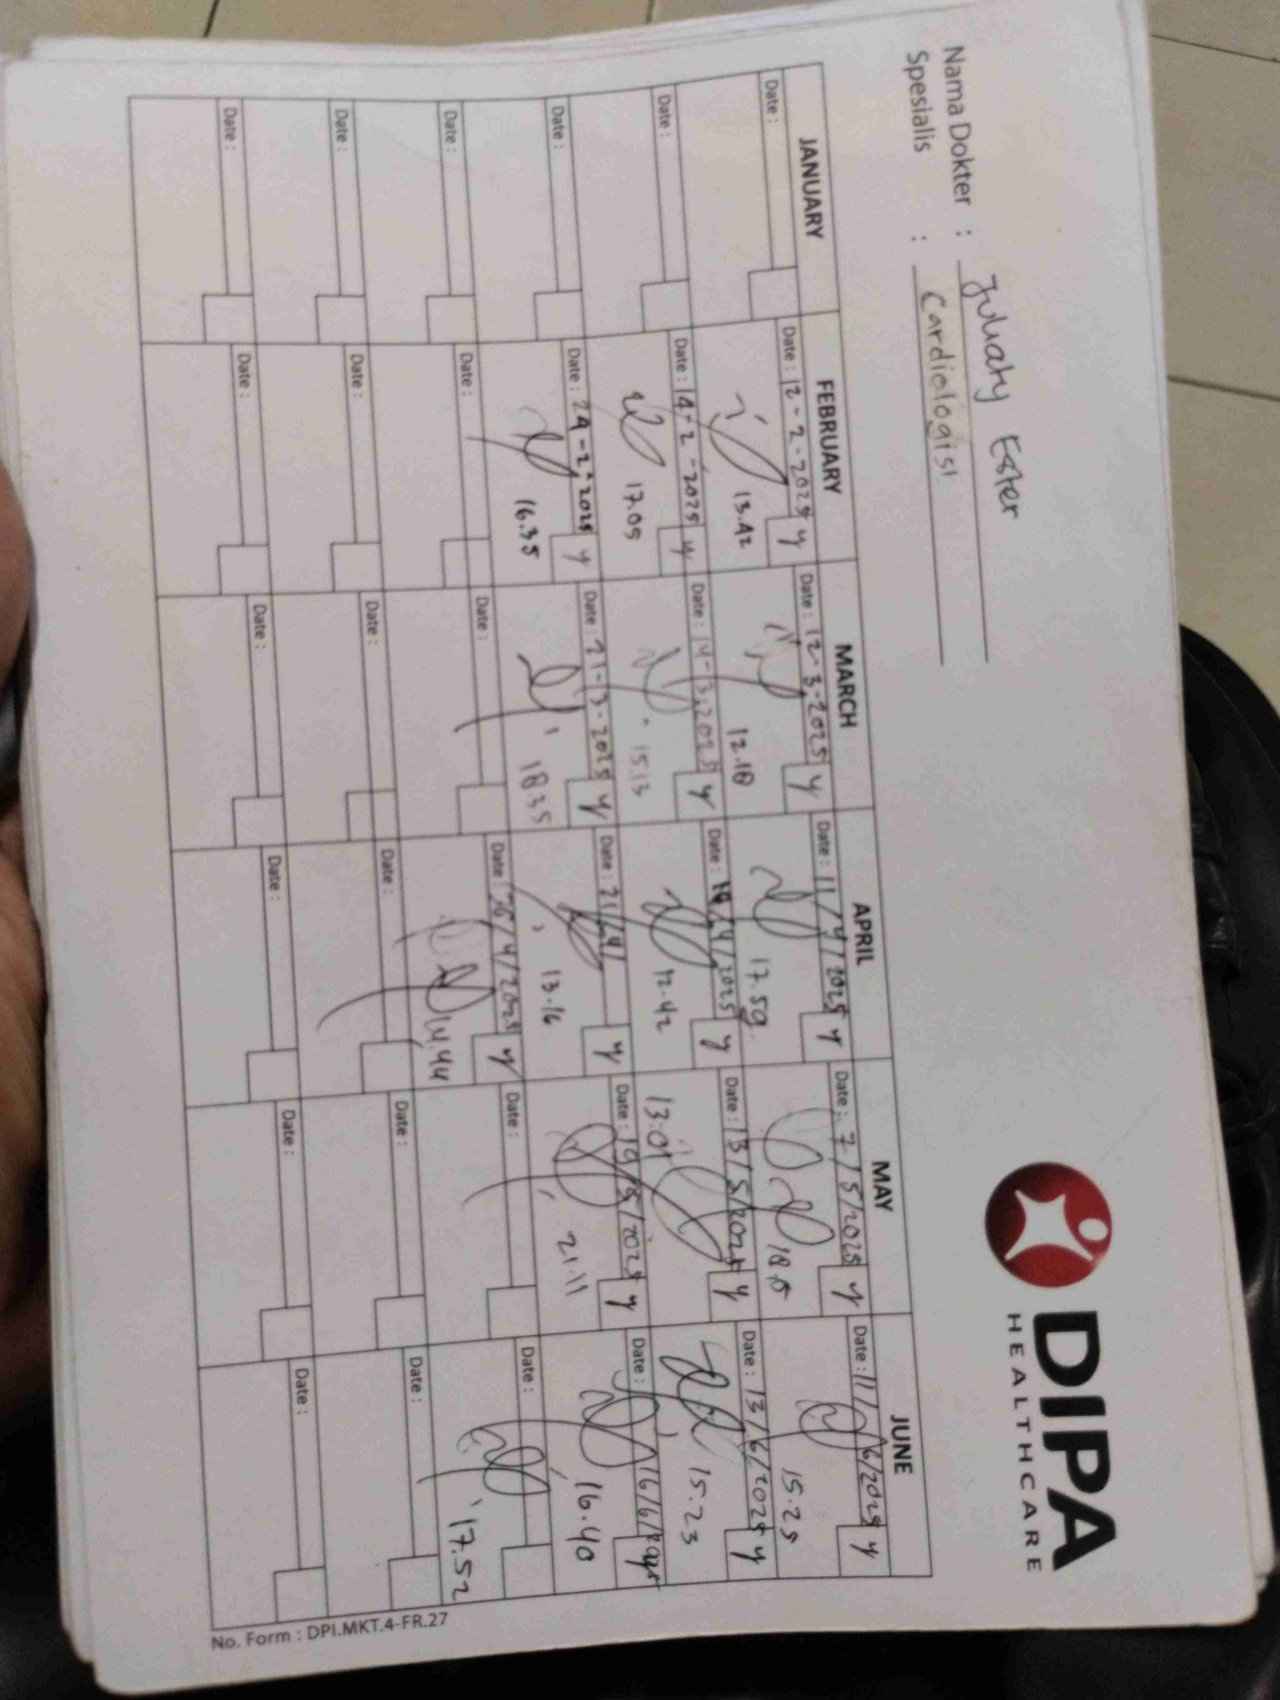 DIPA
HEALTHCARE
Nama Dokter : Juliaty Ester
Spesialis : Cardiologist
JANUARY FEBRUARY MARCH APRIL MAY JUNE
Date : Date : 12-2-2025 y Date : 12-3-2025 y Date : 11/4/2025 y Date : 7/5/2025 y Date : 11/6/2025 y
13.42 12.18 17.59 18. 15.25
Date : Date : 14-2-2025 y Date : 14-3-2025 y Date : /4/2025 y Date : 13/5/2025 y Date : 13/6/2025 y
17.05 15.13 12.42 13:01 15.23
Date : Date : 24-2-2025 y Date : 21-3-2025 y Date : 21/4/ y Date : 19/5/2025 y Date : 16/6/2025 y
16.35 18.35 13.16 21.11 16.40
Date : Date : Date : Date : 26/4/2025 y Date : Date :
14.44 17.52
Date : Date : Date : Date : Date : Date :
Date : Date : Date : Date : Date : Date :
No. Form : DPI.MKT.4-FR.27